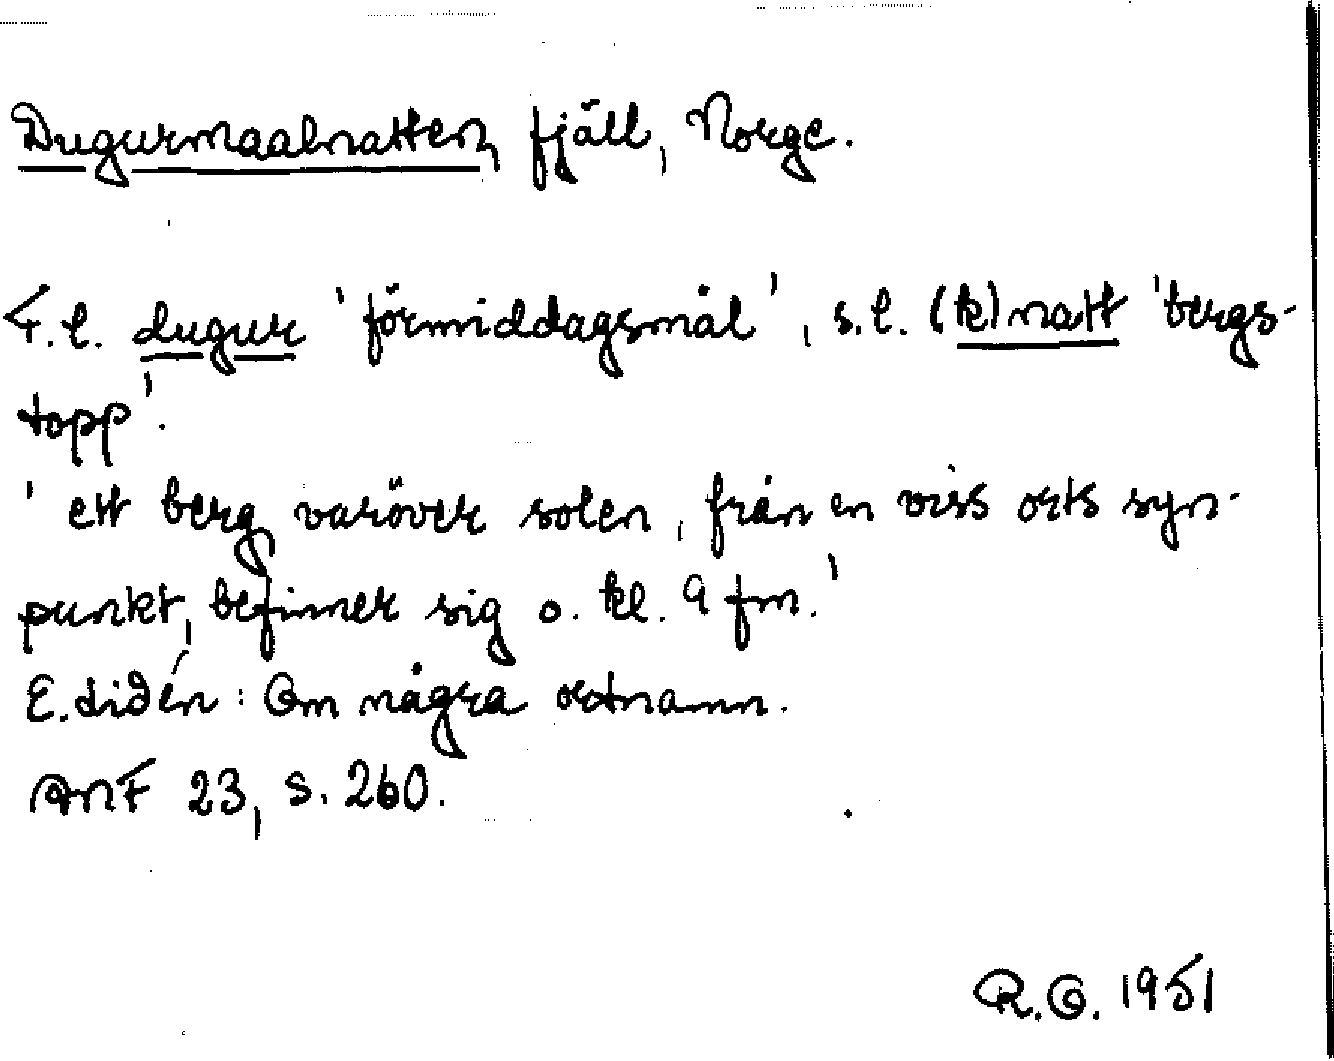 Dugurmaalnatten, fjäll, Norge.
F.l. dugur 'förmiddagsmål', s.l. (k)natt 'bergs-
topp'.
'ett berg varöver solen, från en viss orts syn-
punkt, befinner sig o. kl. 9 fm.'
E. Lidén: Om några ortnamn.
ANF 23, s. 260.
R.G. 1951